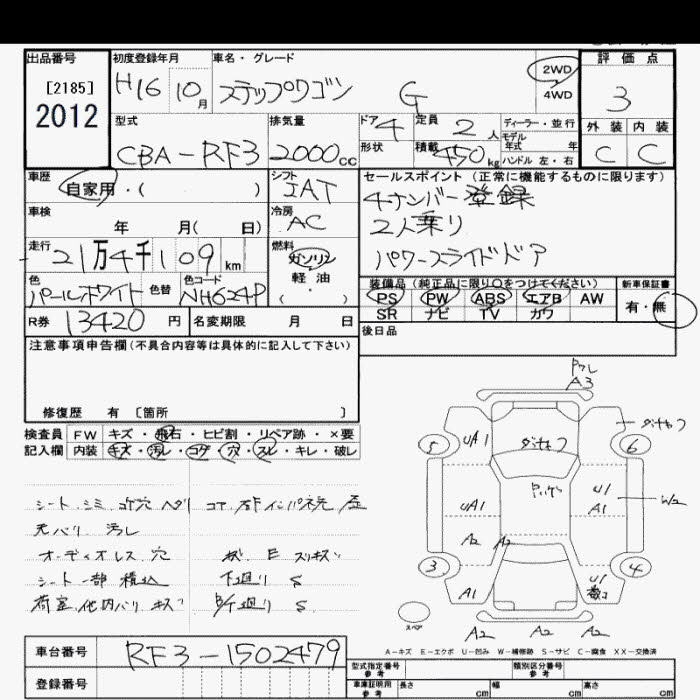 出品番号
[2185]
2012
初度登録年月
H16 10月
車名・グレード
ステップワゴン G
2WD
4WD
評価点
3
外装 内装
C C
型式
CBA-RF3
排気量
2000cc
ドア 4
形状
定員 2人
積載 450kg
ディーラー・並行
モデル
年式 年
ハンドル 左・右
車歴
自家用・( )
シフト
IAT
セールスポイント (正常に機能するものに限ります)
4ナンバー登録
2人乗り
パワースライドドア
車検
年 月(日)
冷房
AC
走行
21万4千109km
燃料
ガソリン
軽油
(・)
色
パールホワイト
色替
色コード
NH624P
装備品(純正品に限り○をつけてください)
PS PW ABS エアB AW
SR ナビ TV カワ
新車保証書
有・無
R券 13420円
名変期限 月 日
後日品
注意事項申告欄(不具合内容等は具体的に記入して下さい)
修復歴 有 [箇所 ]
検査員 FW キズ・飛石・ヒビ割・リペア跡・×要
記入欄 内装 キズ・汚レ・コゲ・穴・スレ・キレ・破レ
シート シミ コゲ穴 ヘタリ
天バリ 汚レ
オーディオレス 穴
シート一部積込
下廻り S
荷室 他内バリ キズ
A3
ダメヤフ
5
UA1
6
UA1
U1
A1
W2
A2
A2
3
4
A1
U1
スペア
A2 A2 A2
A-キズ E-エクボ U-凹み W-補修跡 S-サビ C-腐食 XX-交換済
車台番号
RF3-1502479
登録番号
型式指定番号
参考
類別区分番号
参考
車庫証明用
参考
長さ cm
幅 cm
高さ cm